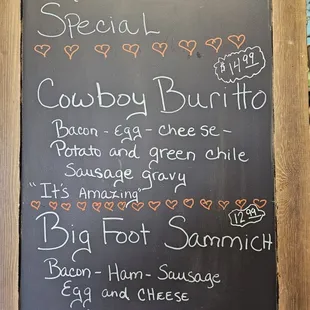 Special
$14.99
Cowboy Buritto
Bacon - Egg - cheese -
Potato and green chile
Sausage gravy
"It's Amazing"
12.99
Big Foot Sammich
Bacon - Ham - Sausage
Egg and CHEESE